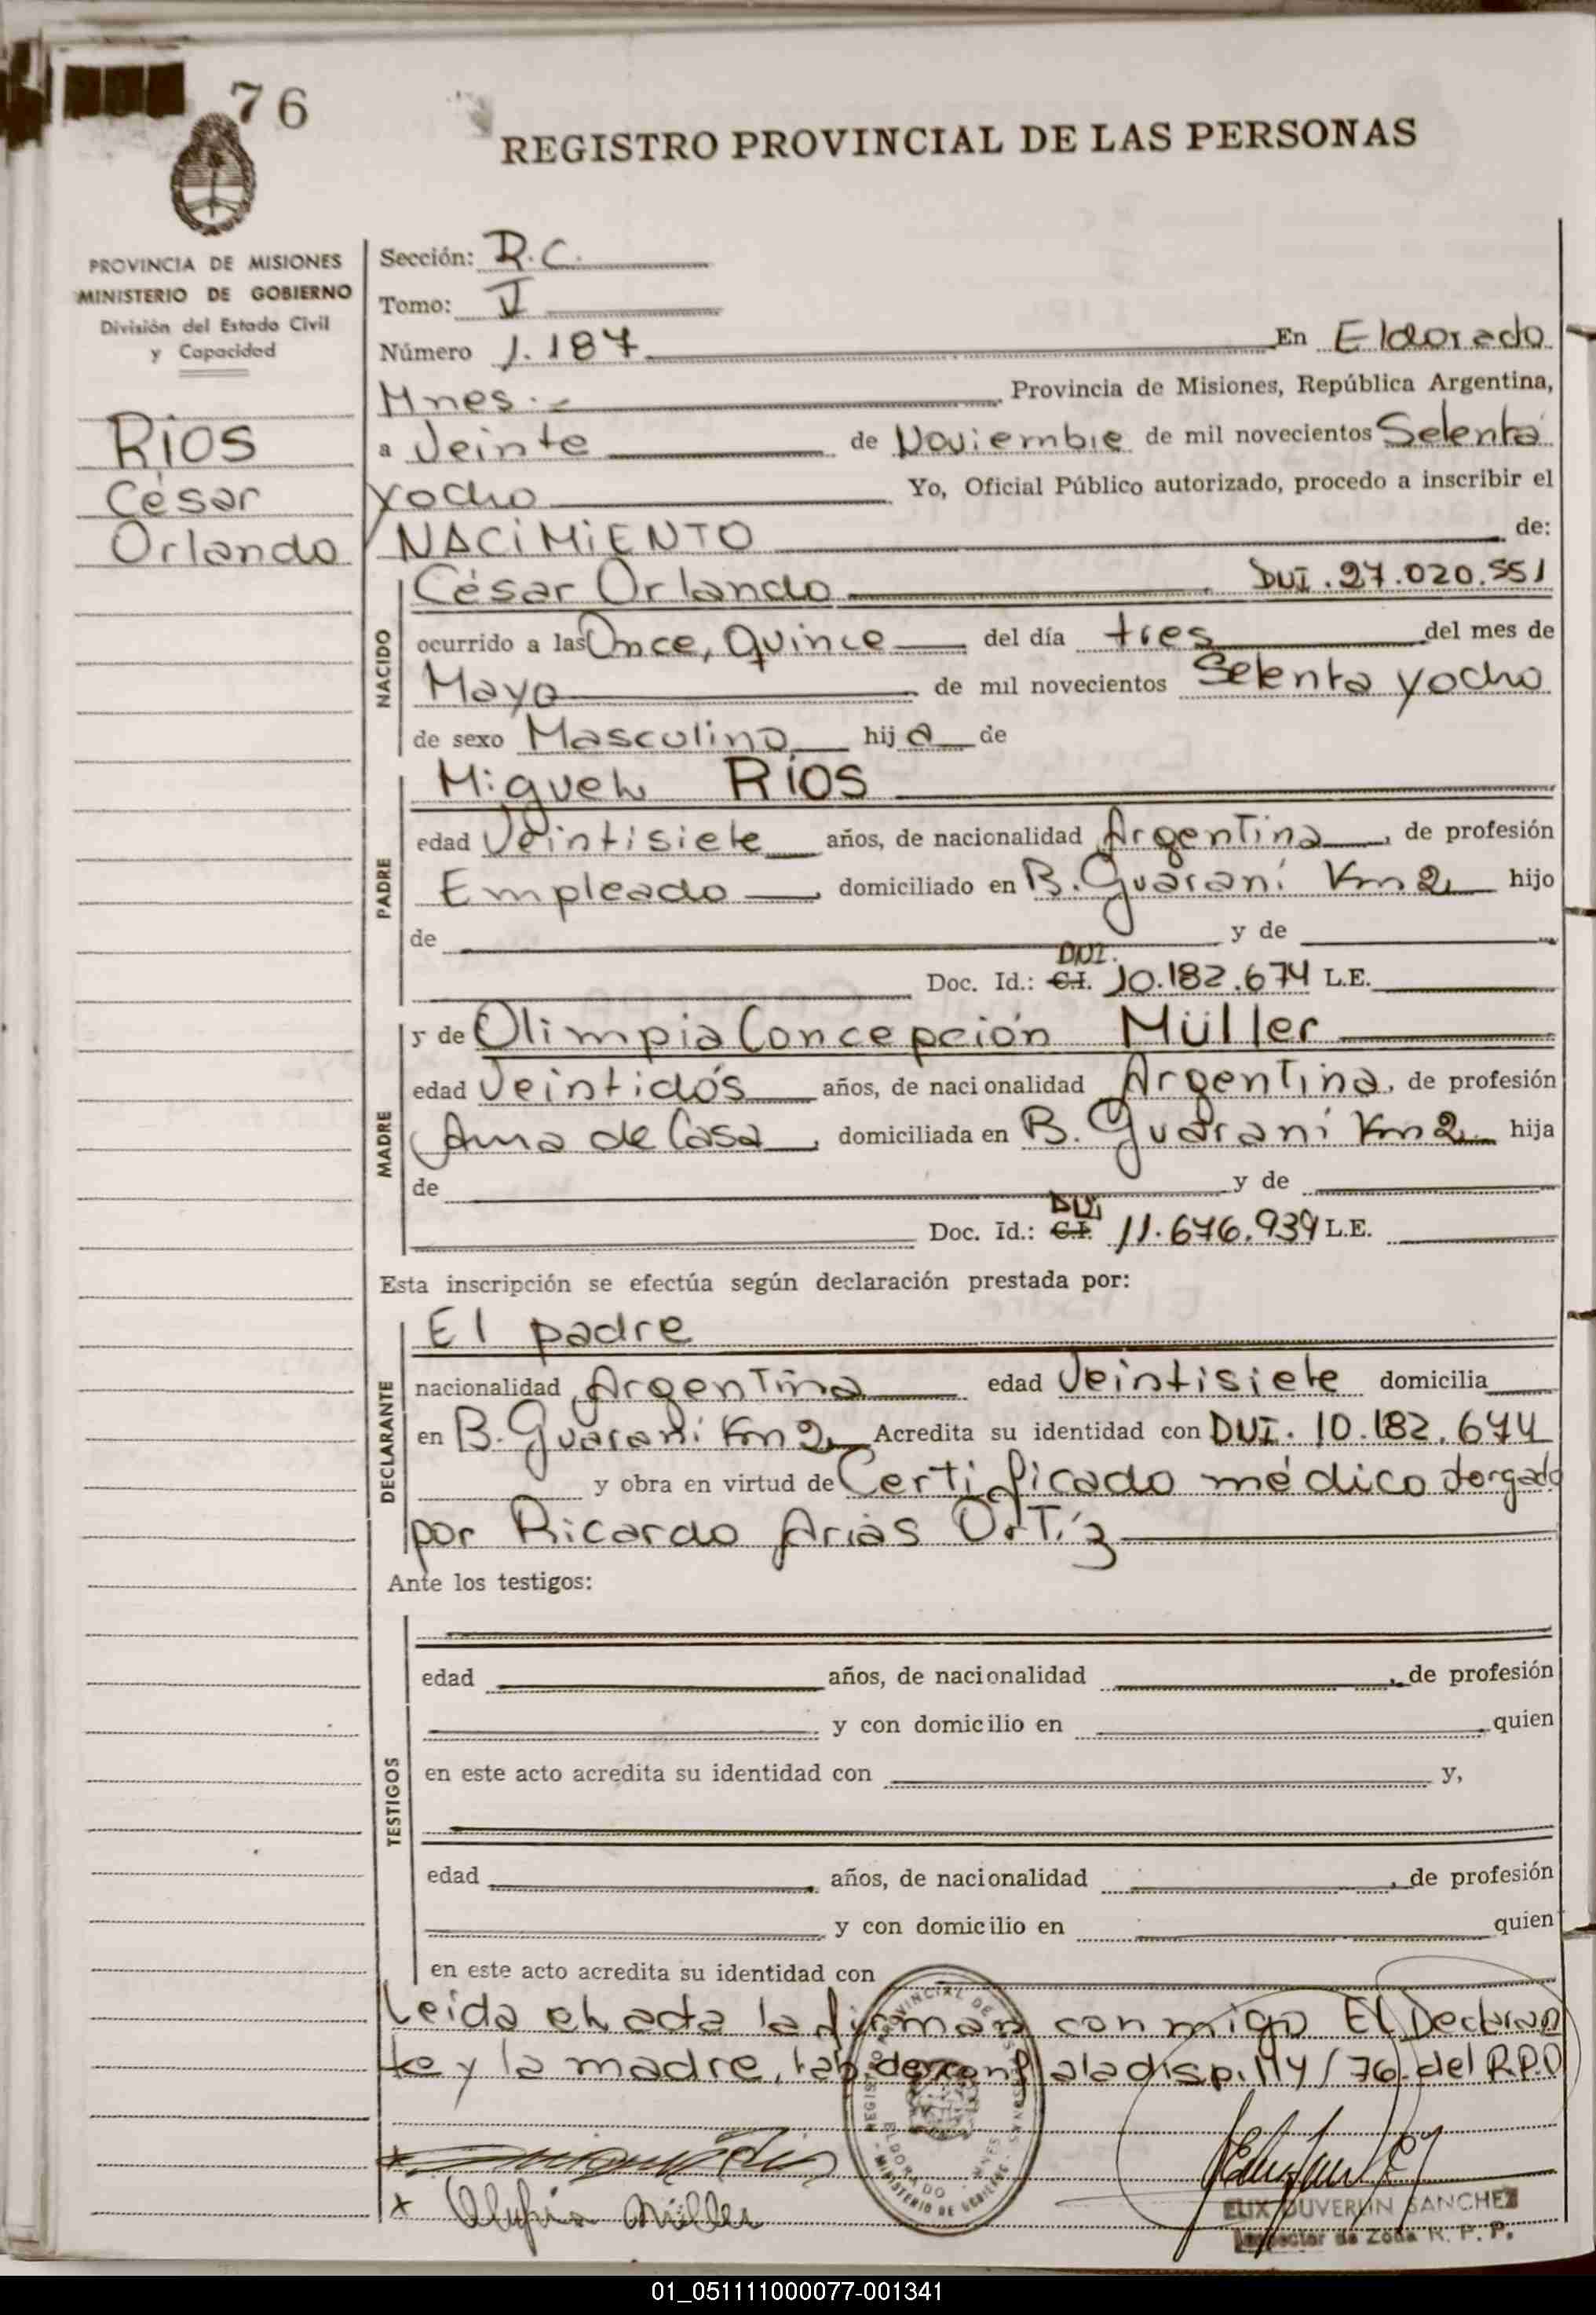 76
REGISTRO PROVINCIAL DE LAS PERSONAS
PROVINCIA DE MISIONES
MINISTERIO DE GOBIERNO
División del Estado Civil
y Capacidad
Ríos
César
Orlando
Sección: R.C.
Tomo: V
Número 1.187 En Eldorado
Mnes.- Provincia de Misiones, República Argentina,
a Veinte de Noviembre de mil novecientos Setenta
yocho Yo, Oficial Público autorizado, procedo a inscribir el
NACIMIENTO de:
NACIDO
César Orlando DNI. 27.020.551
ocurrido a las Once, Quince del día tres del mes de
Mayo de mil novecientos Setenta yocho
de sexo Masculino hijo de
PADRE
Miguel Ríos
edad Veintisiete años, de nacionalidad Argentina, de profesión
Empleado, domiciliado en B. Guaraní Km 2 hijo
de y de
DNI.
Doc. Id.: C.I. 10.182.674 L.E.
MADRE
y de Olimpia Concepción Müller
edad Veintidós años, de nacionalidad Argentina, de profesión
Ama de Casa, domiciliada en B. Guaraní Km 2 hija
de y de
DNI
Doc. Id.: C.I. 11.676.939 L.E.
Esta inscripción se efectúa según declaración prestada por:
DECLARANTE
El padre
nacionalidad Argentina edad Veintisiete domicilia
en B. Guaraní Km 2 Acredita su identidad con DNI. 10.182.674
y obra en virtud de Certificado médico otorgado
por Ricardo Arias Ortíz
Ante los testigos:
TESTIGOS
edad años, de nacionalidad, de profesión
y con domicilio en quien
en este acto acredita su identidad con y,
edad años, de nacionalidad, de profesión
y con domicilio en quien
en este acto acredita su identidad con
Leída el acta la firman conmigo El Declaran
te y la madre, de conf a la disp. 114/76 del R.P.P
REGISTRO PROVINCIAL DE LAS PERSONAS
ELDORADO - MNES
MINISTERIO DE GOBIERNO
Olimpia Müller
ELIX DUVERLIN SANCHEZ
Inspector de Zona R. P. P.
01_051111000077-001341